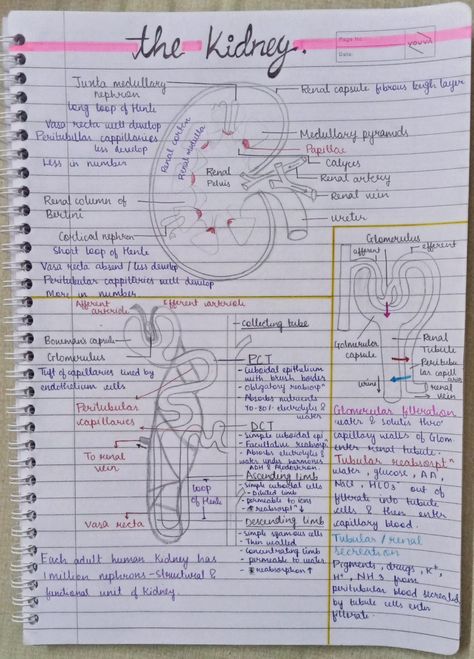 the Kidney.
Page No.
Date:
YOUVA
Juxta medullary
nephron
long loop of Henle
Vasa recta well develop
Peritubular cappillaries
less develop
Less in number
Renal column of
Bertini
Cortical nephron
Short loop of Henle
Vasa recta absent / less develop
Peritubular cappilaries well develop
More in number
Renal cortex
Renal medulla
Renal
Pelvis
Renal capsule fibrous tough layer
Medullary pyramids
Papillae
Calyces
Renal artery
Renal vein
Ureter
Afferent
arteriole
Efferent arteriole
Bowman's capsule
Glomerulus
Tuft of capillaries lined by
endothelium cells
Peritubular
capillaries
To renal
vein
Vasa recta
Loop
of Henle
Each adult human Kidney has
1 million nephrons - Structural &
functional unit of Kidney.
Collecting tube
PCT
- Cuboidal epithelium
with brush border
- Obligatory reabsorpⁿ
- Absorbs nutrients
70-80% electrolyte &
water
DCT
- Simple cuboidal epi
- Facultative reabsorpⁿ
- Absorbs electrolytes &
water under hormones
ADH & Aldosterone
Ascending limb
- Simple cuboidal cells
- Diluted limb
- permeable to ions
- reabsorpⁿ ↓
Descending limb
- Simple sqamous cells
- Thin walled
- Concentrating limb
- permeable to water
- reabsorption ↑
Glomerulus
afferent
efferent
Glomerular
capsule
Renal
Tubule
Peritubu
lar capill
aries
renal
vein
Urine
Glomerular filteration
water & solutes thro'
capillary walls of Glom
enter renal tubule.
Tubular reabsorptⁿ
water, glucose, AA,
NaCl, HCO3⁻ out of
filterate into tubule
cells & then enter
capillary blood.
Tubular / renal
secreation
Pigments, drugs, K⁺,
H⁺, NH3 from
peritubular blood secreated
by tubule cells enter
filterate.